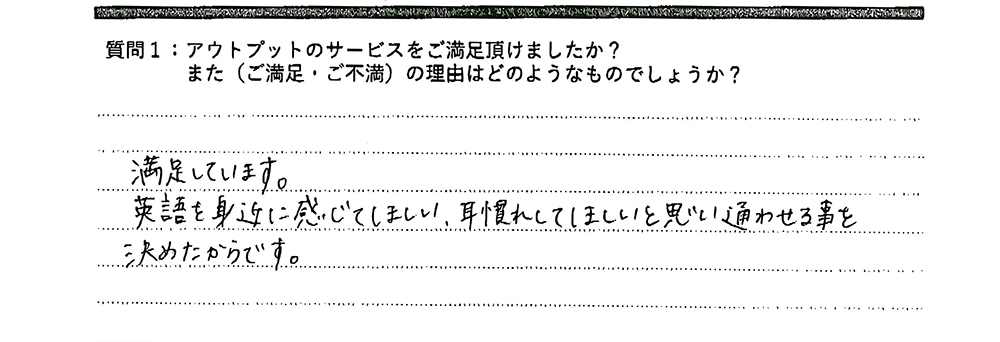 質問1：アウトプットのサービスをご満足頂けましたか？
また（ご満足・ご不満）の理由はどのようなものでしょうか？
満足しています。
英語を身近に感じてほしい、耳慣れしてほしいと思い通わせる事を
決めたからです。